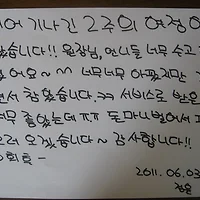 기나긴 2주의 여정이
했습니다!! 원장님, 언니들 너무 수고
어요~ ^^ 너무너무 아팠지만
면서 참았습니다. >> 서비스로 받은
너무 좋았는데 ㅠㅠ 돈 마니 벌어서
으러 오겠습니다~ 감사합니다!!
2011. 06. 03